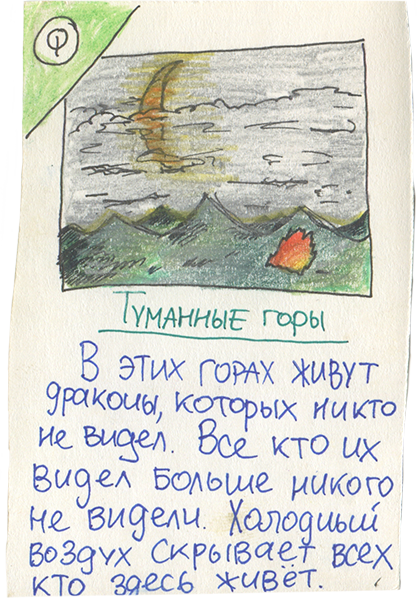 Ф
Туманные горы
В этих горах живут
драконы, которых никто
не видел. Все кто их
видел больше никого
не видели. Холодный
воздух скрывает всех
кто здесь живёт.